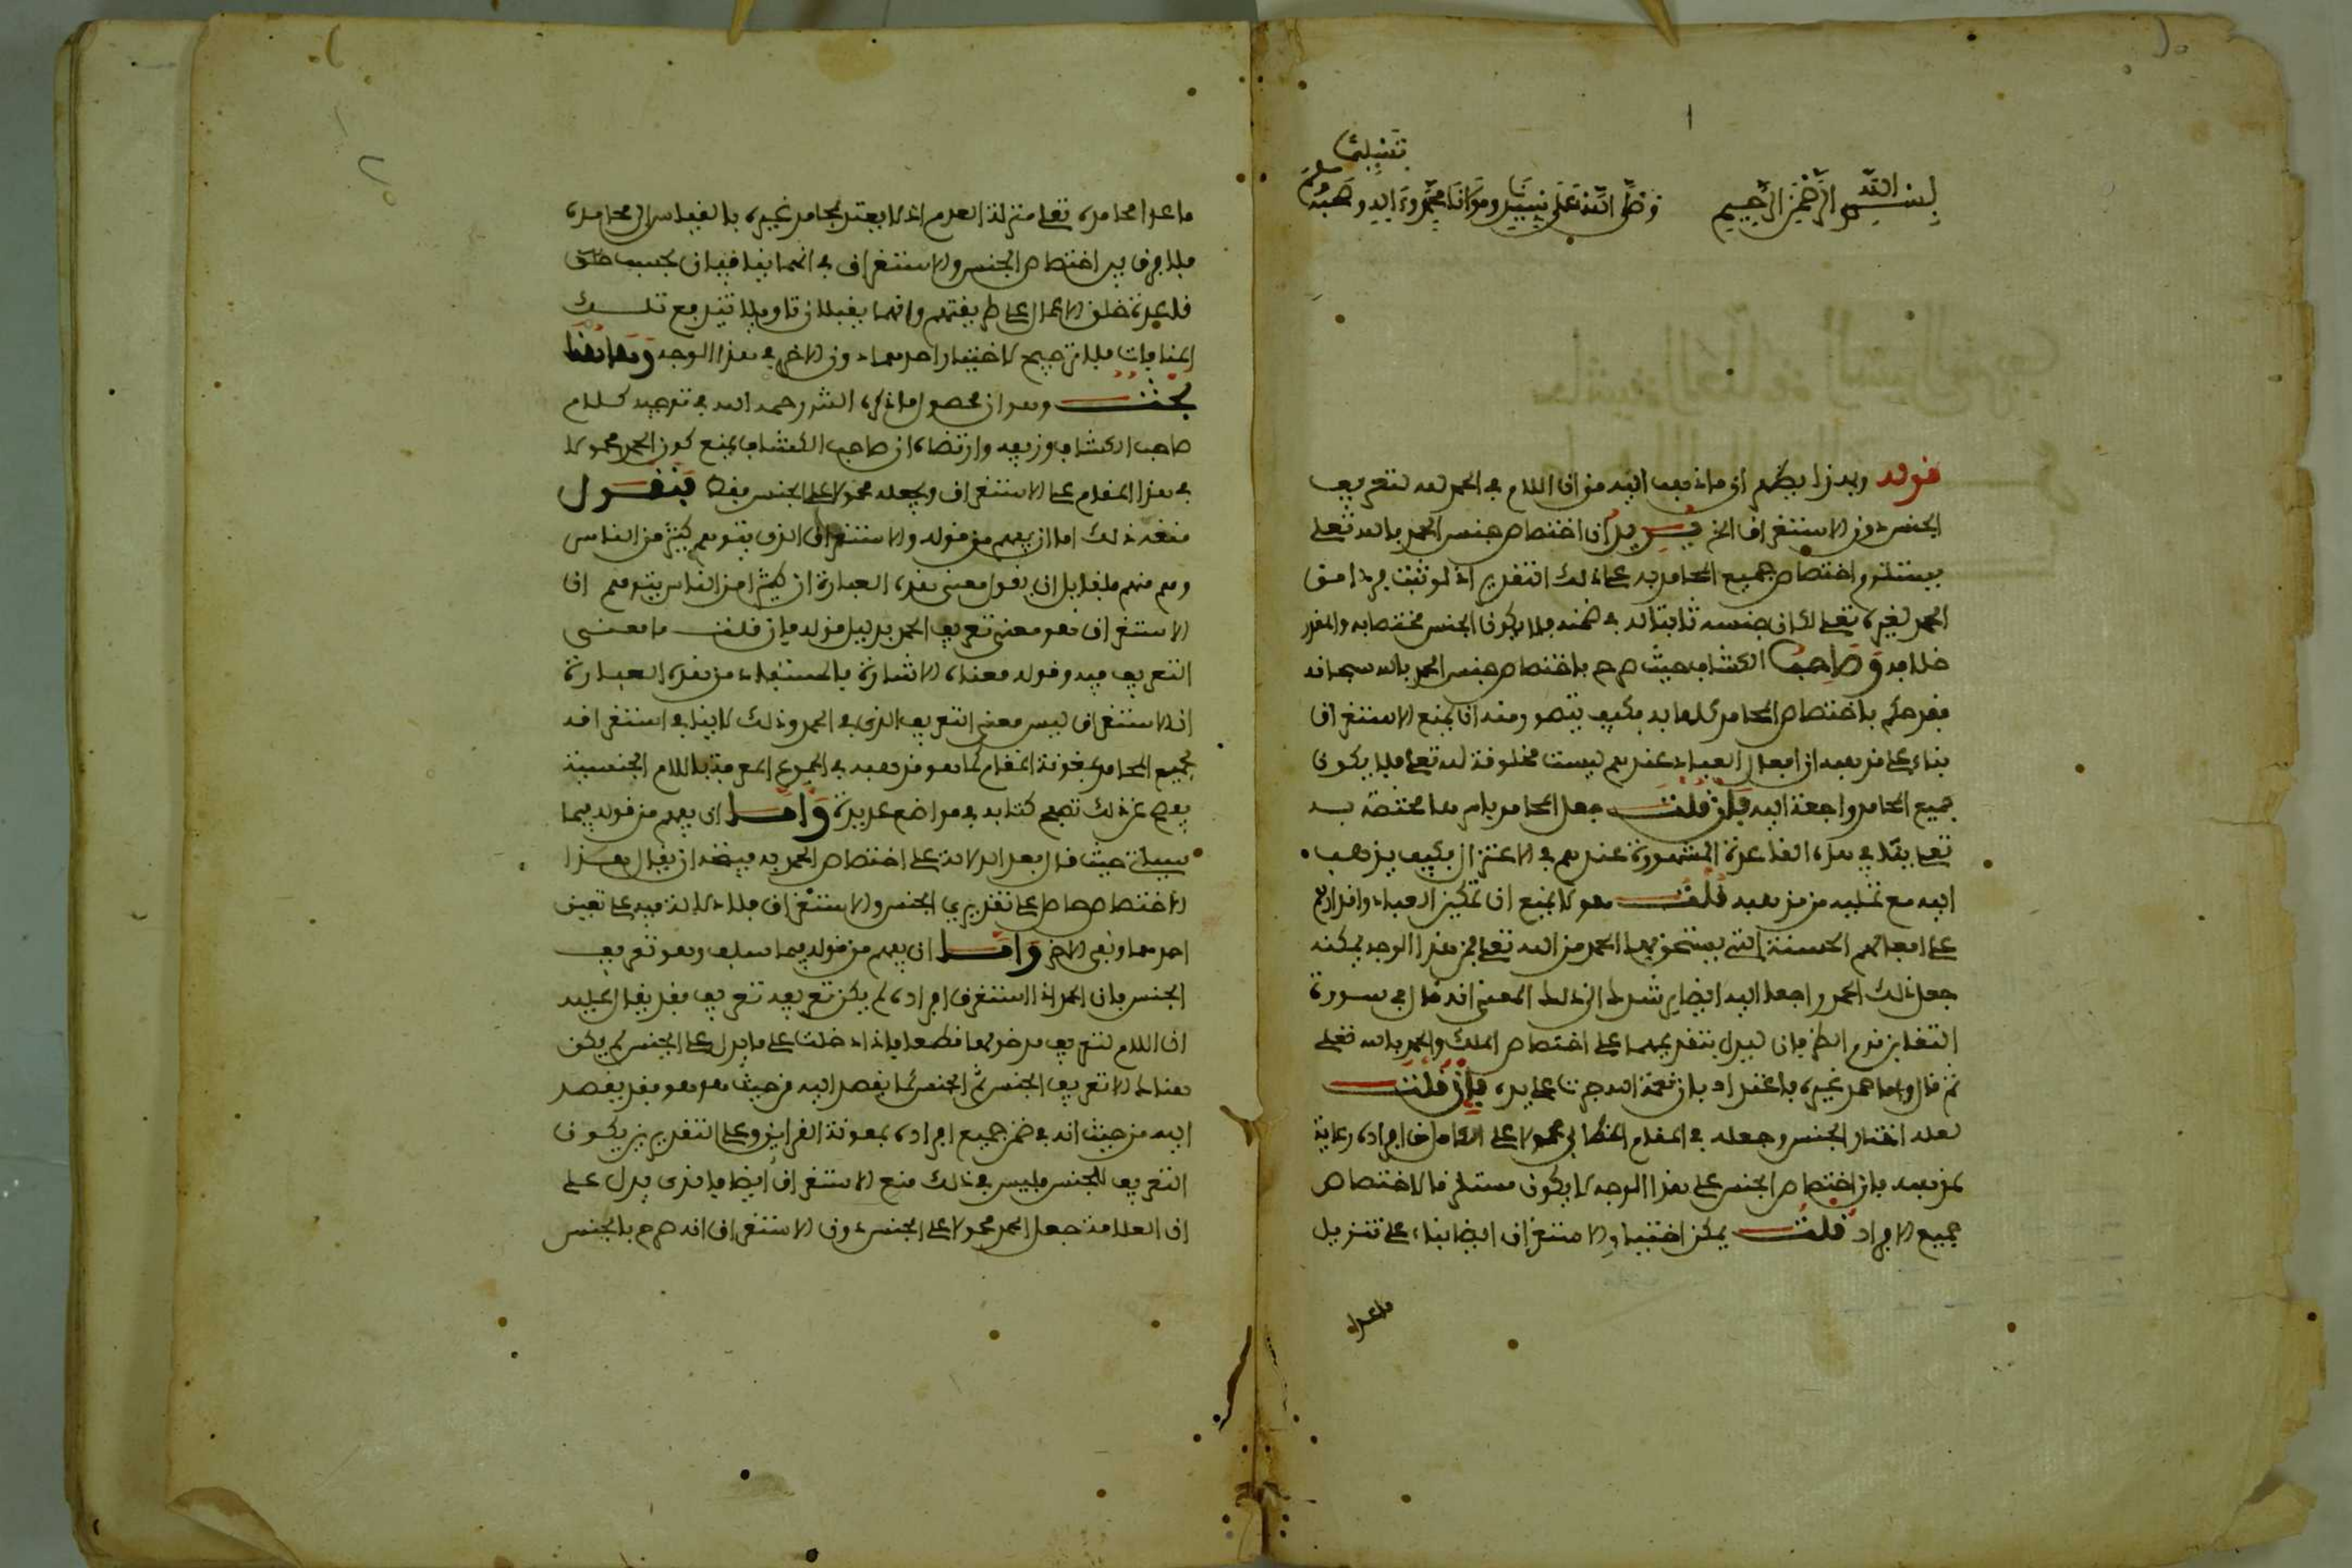 بسم الله الرحمن الرحيم وصلى الله على نبينا ومولانا محمد وءاله وصحبه
وسلم تسليما
قوله وبهذا يظهر ان ما ذهب اليه من ان اللام في الحمد لله لتعريف
الجنس دون الاستغراق الخ فيل ان اختصاص جنس الحمد بالله تعلى
يستلزم اختصاص جميع المحامد به على ذلك التقدير اذ لو ثبت فرد من
الحمد لغيره تعلى لكان جنسه ثابتا له في ضمنه فلا يكون الجنس مختصا به والمقرر
خلافه وصاحب الكشاف حيث صرح باختصاص جنس الحمد بالله سبحانه
فقد حكم باختصاص المحامد كلها به فكيف يتصور منه ان يمنع الاستغراق
بناء على مذهبه ان افعال العباد عندهم ليست مخلوقة لله تعلى فلا يكون
جميع المحامد راجعة اليه فان قلت جعل المحامد باسرها مختصة به
تعلى ينافي هذه القاعدة المشهورة عندهم في الاعتزال فكيف يذهب
اليه مع تصلبه من مذهبه قلت هو لا يمنع ان تمكين العباد واقدارهم
على افعالهم الحسنة التي يستحق بها الحمد من الله تعلى فمن هذا الوجه يمكنه
جعل ذلك الحمد راجعا اليه ايضا يرشدك الى ذلك المعنى انه قال في سورة
التغابن قدم الظرفان ليدل بتقديمهما على اختصاص الملك والحمد بالله تعلى
ثم قال واما حمد غيره فاعتداد بان نعمة الله جرت على يده فان قلت
لعله اختار الجنس وجعله في المقام الخطابي محمولا على الكامل من افراده رعاية
لمذهبه فان اختصاص الجنس على هذا الوجه لا يكون مستلزما لاختصاص
جميع الافراد قلت يمكن اختيار الاستغراق ايضا بناء على تنزيل
ما عدا
ما عدا محامده تعلى منزلة العدم اذ لا يعتد بمحامد غيره بالقياس الى محامده
فلا فرق بين اختصاص الجنس والاستغراق في انهما ينافيان بحسب
قاعدة خلق الاعمال على طريقتهم وانهما يقبلان تاويلا تندفع تلك
المنافات فلا ترجيح لاختيار احدهما دون الاخر في هذا الوجه وهاهنا
بحث وهو ان محصول ما ذكره الش رحمه الله في توجيه كلام
صاحب الكشاف وزيفه وارتضاه ان صاحب الكشاف يمنع كون الحمد محمولا
في هذا المقام على الاستغراق ويجعله محمولا على الجنس فقط فنقول
منعه ذلك اما ان يفهم من قوله والاستغراق الذي يتوهمه كثير من الناس
وهم منهم فلقايل ان يقول معنى هذه العبارة ان كثيرا من الناس يتوهم ان
الاستغراق هو معنى تعريف الحمد بدليل قوله فان قلت ما معنى
التعريف فيه وقوله معناه الاشارة فالمستفاد من هذه العبارة
ان الاستغراق ليس معنى التعريف الذي في الحمد وذلك لا ينافي استغراقه
لجميع المحامد بمعونة المقام كما هو مذهبه في الجموع المعرفة باللام الجنسية
يفصح عن ذلك تصفح كتابه في مواضع عديدة واما ان يفهم من قوله فيما
سياتي حيث قال بعد الدلالة على اختصاص الحمد به فيتجه ان يقال هذا
الاختصاص حاصل على تقديري الجنس والاستغراق فلا دلالة فيه على تعيين
احدهما ونفي الاخر واما ان يفهم من قوله فيما سلف وهو تعريف
الجنس فان الحمد اذا استغرق افراده لم يكن تعريفه تعريف فقد يقال عليه
ان اللام لتعريف مدخولها قطعا فاذا دخلت على ما يدل على الجنس لم يكن
هناك الا تعريف الجنس ثم الجنس كما يقصد اليه من حيث هو هو فقد يقصد
اليه من حيث انه في ضمن جميع افراده بمعونة القراين وعلى التقديرين يكون
التعريف للجنس فليس في ذلك منع الاستغراق ايضا فما الذي يدل على
ان العلامة جعل الحمد محمولا على الجنس دون الاستغراق انه صرح بالجنس